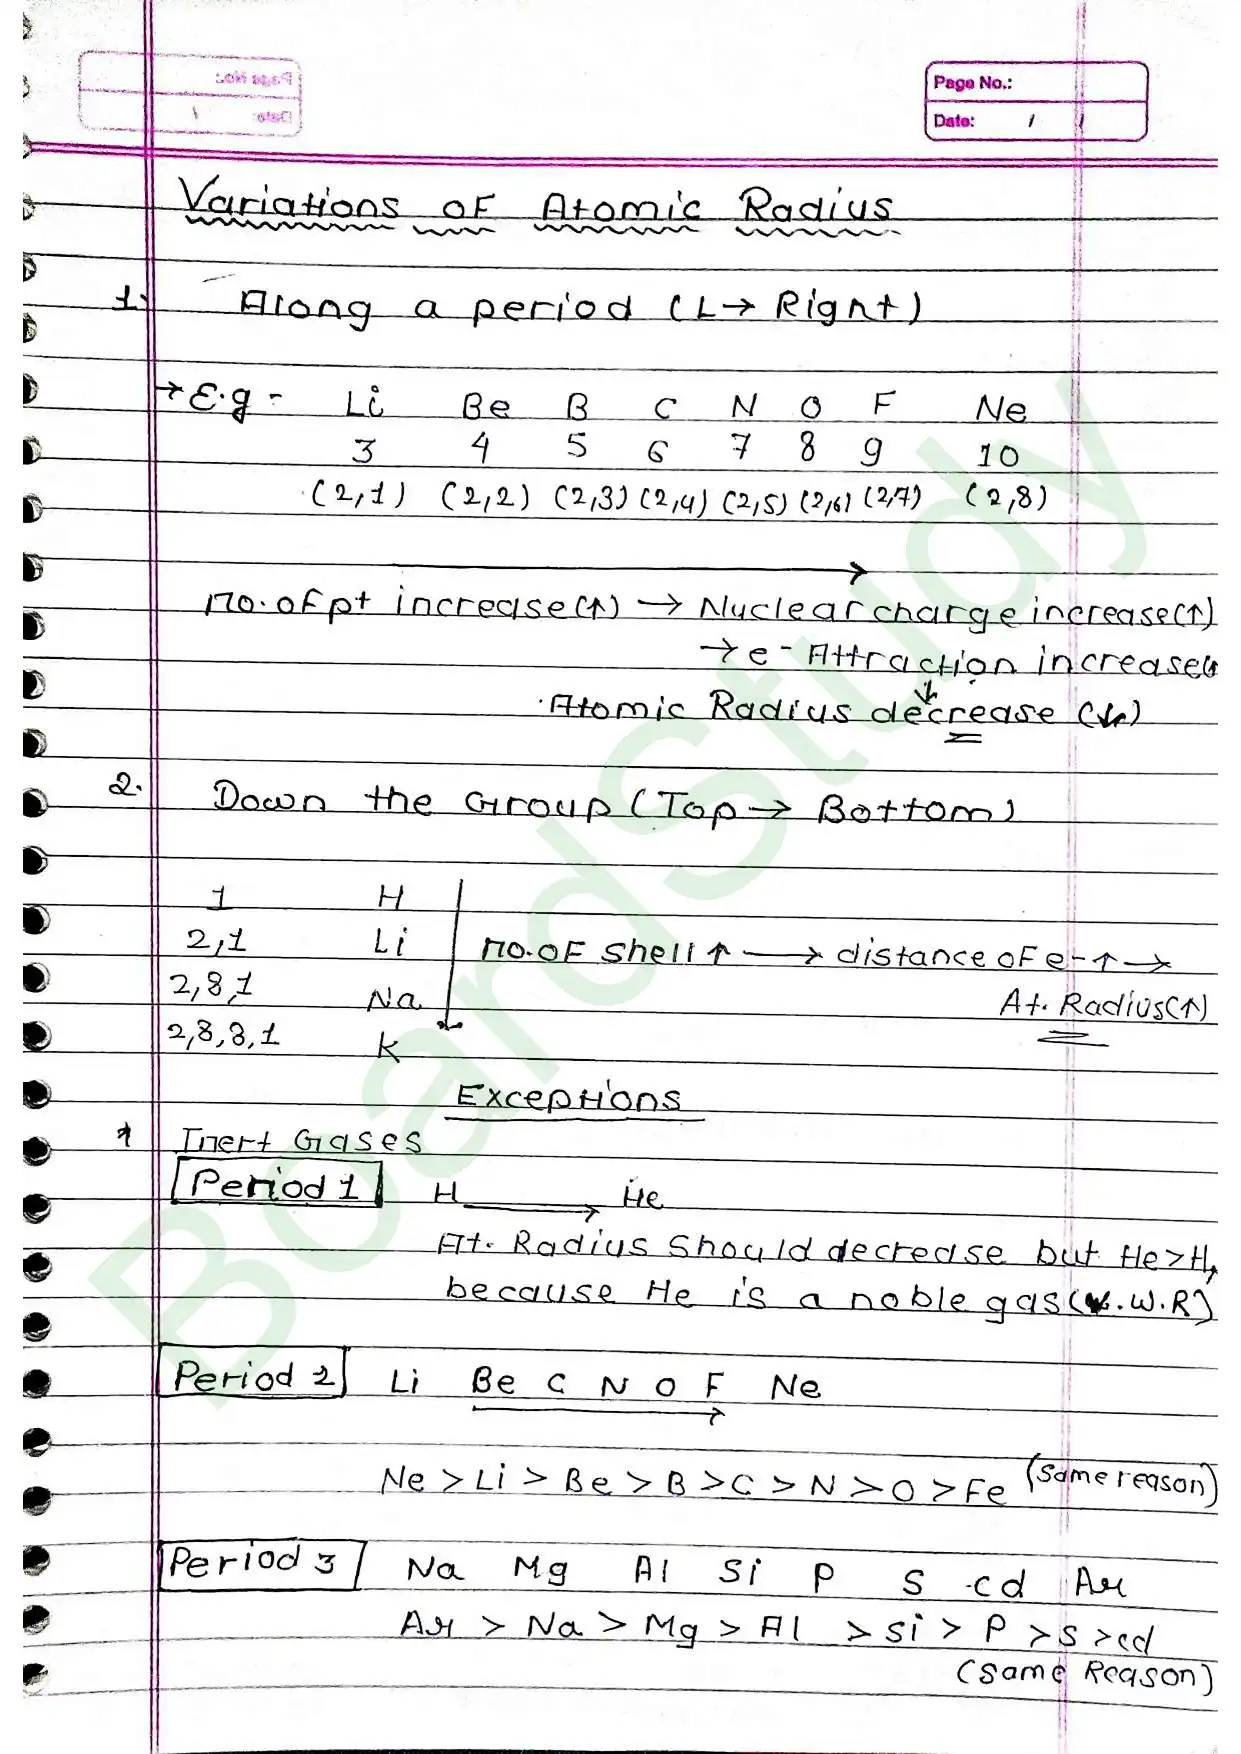 Page No.:
Date: / /
Page No.:
Date: / /
Variations of Atomic Radius
1. Along a period (L → Right)
→ E.g - Li Be B C N O F Ne
3 4 5 6 7 8 9 10
(2,1) (2,2) (2,3) (2,4) (2,5) (2,6) (2,7) (2,8)
no. of p+ increase(↑) → Nuclear charge increase(↑)
→ e- Attraction increase(↑
↓
Atomic Radius decrease (↓)
2. Down the Group (Top → Bottom)
1 H
2,1 Li
no. of shell ↑ → distance of e- ↑ →
2,8,1 Na
At. Radius(↑)
2,8,8,1 K
Exceptions
* Inert Gases
Period 1 H → He
At. Radius should decrease but He > H,
because He is a noble gas (.W.R)
Period 2 Li Be C N O F Ne
Ne > Li > Be > B > C > N > O > Fe (same reason)
Period 3 Na Mg Al Si P S cd Ar
Ar > Na > Mg > Al > Si > P > S > cd
(Same Reason)
BoardStudy